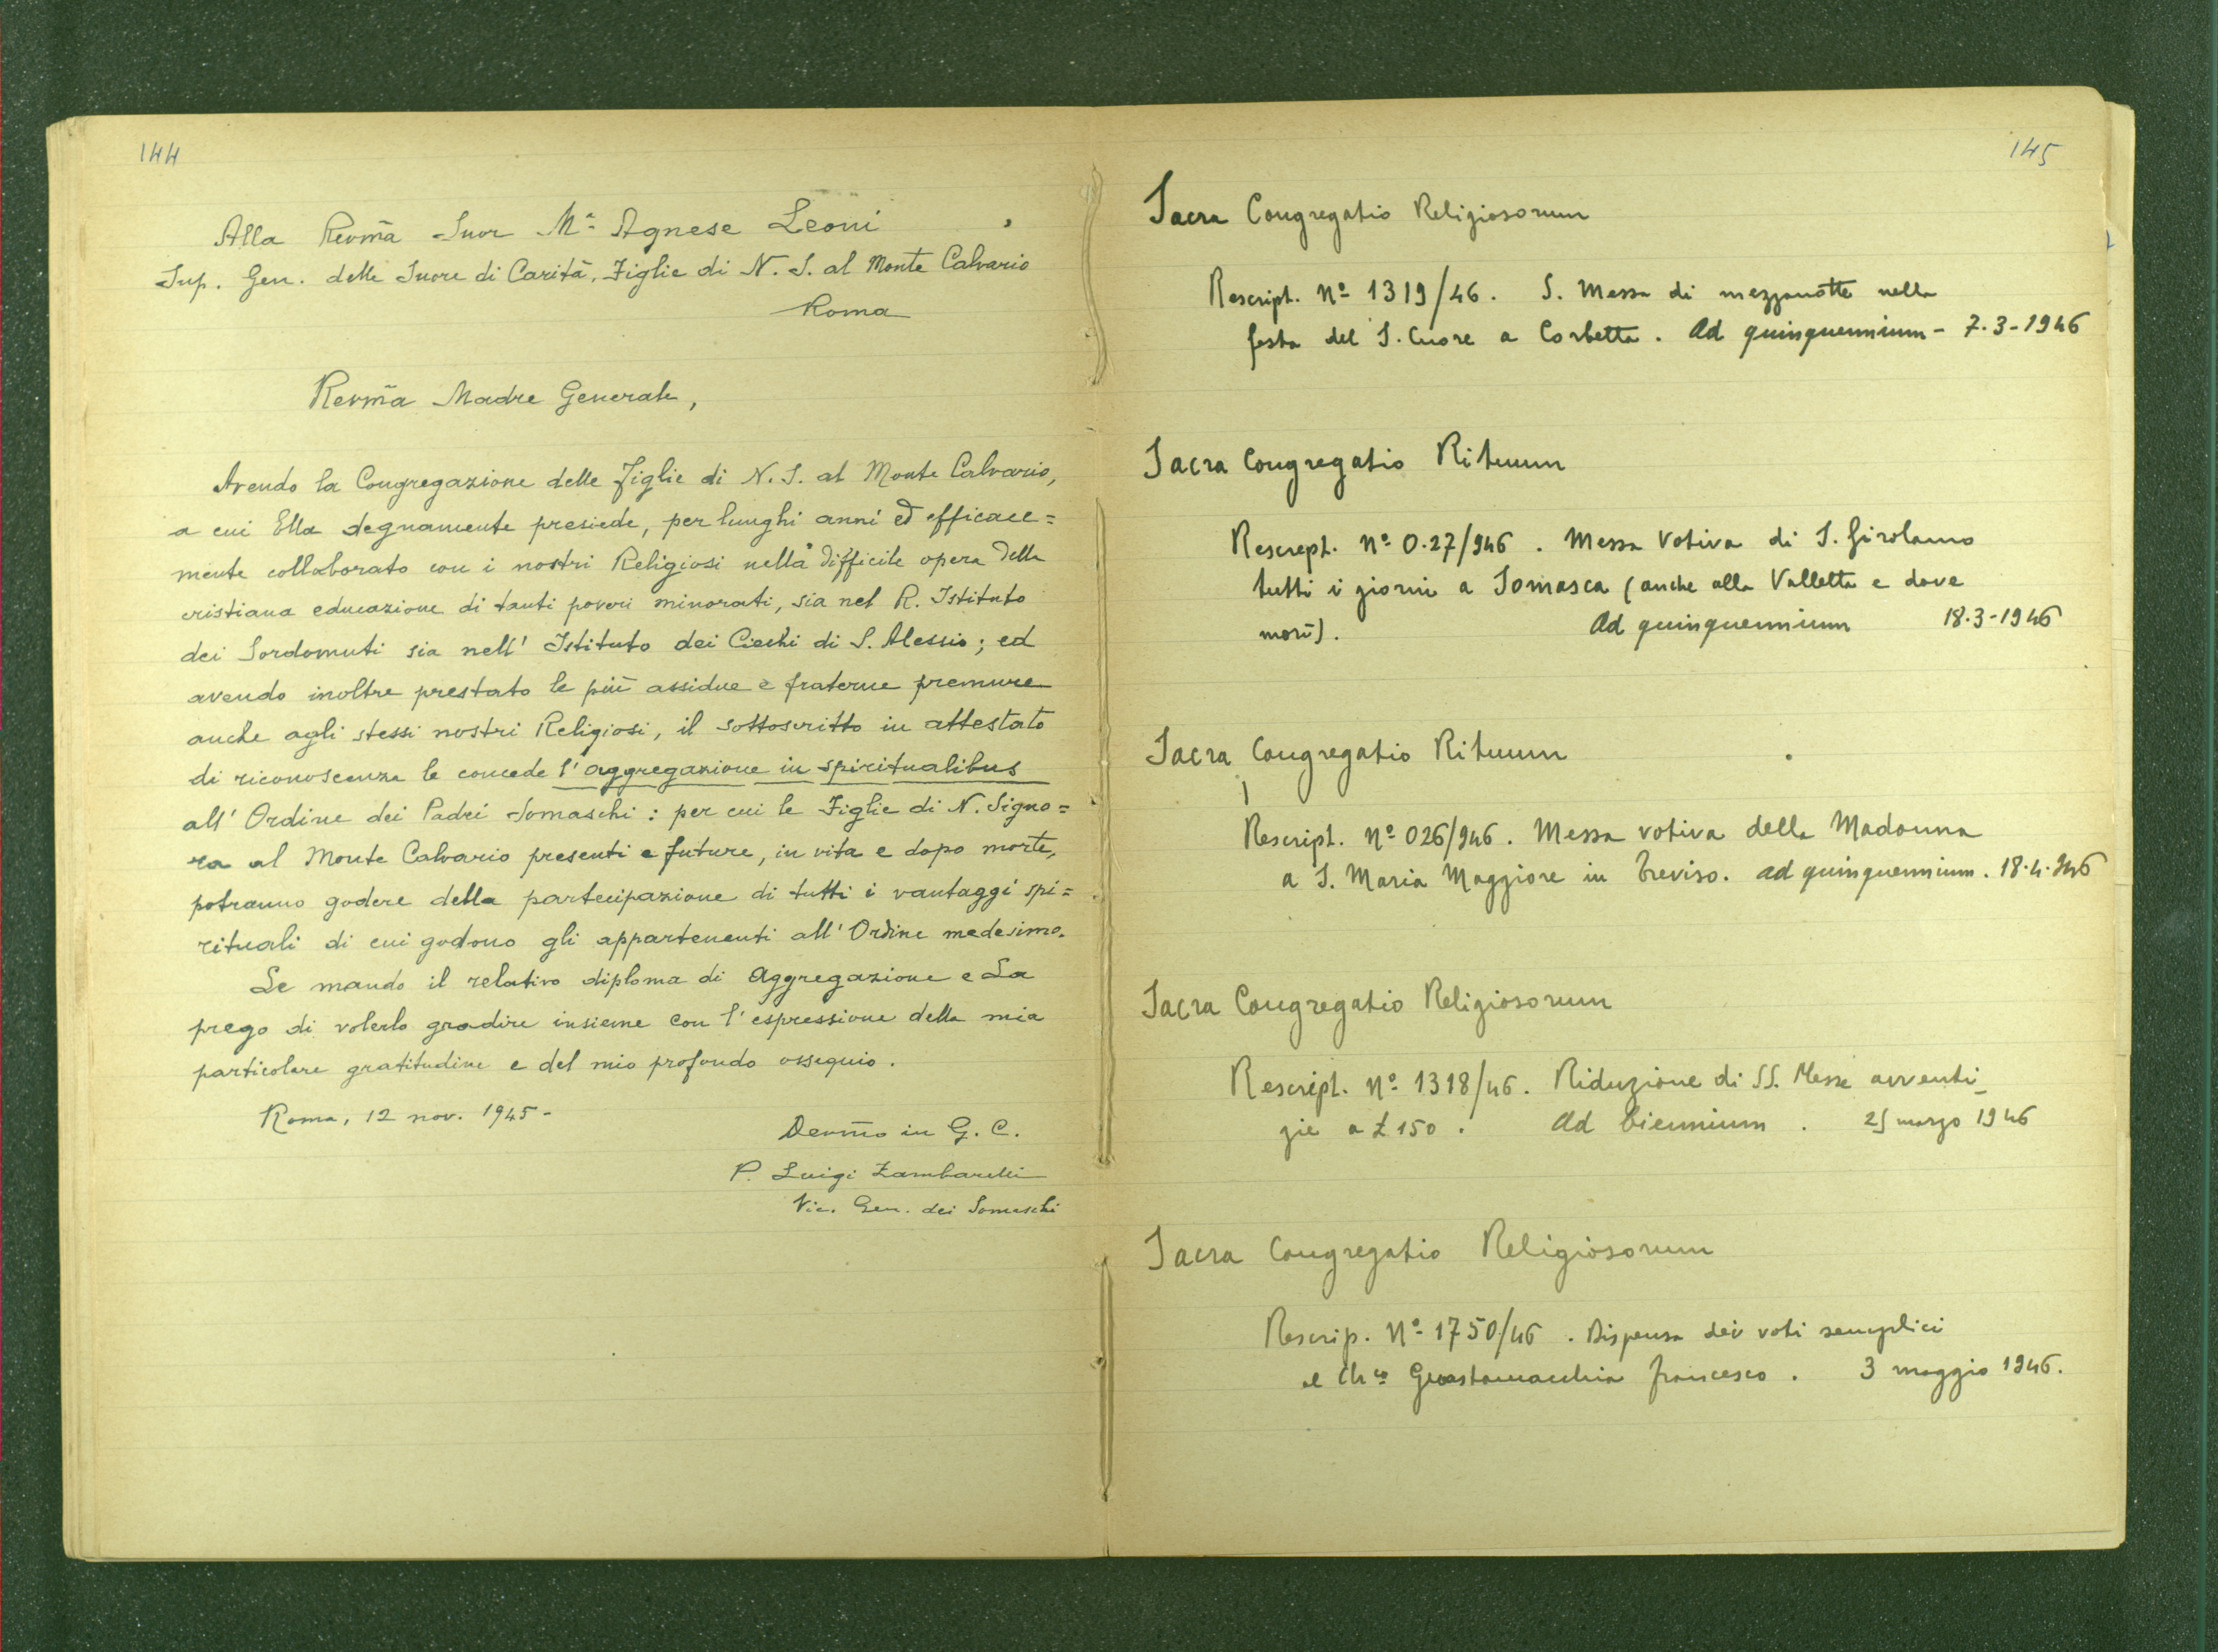 144
Alla Revm̃a Suor Mª Agnese Leoni
Sup. Gen. delle Suore di Carità, Figlie di N. S. al Monte Calvario
Roma
Revm̃a Madre Generale,
Avendo la Congregazione delle Figlie di N. S. al Monte Calvario,
a cui Ella degnamente presiede, per lunghi anni ed efficace=
mente collaborato con i nostri Religiosi nella difficile opera della
cristiana educazione di tanti poveri minorati, sia nel R. Istituto
dei Sordomuti sia nell' Istituto dei Ciechi di S. Alessio; ed
avendo inoltre prestato le più assidue e fraterne premure
anche agli stessi nostri Religiosi, il sottoscritto in attestato
di riconoscenza le concede l'aggregazione in spiritualibus
all' Ordine dei Padri Somaschi: per cui le Figlie di N. Signo=
ra al Monte Calvario presenti e future, in vita e dopo morte,
potranno godere della partecipazione di tutti i vantaggi spi=
rituali di cui godono gli appartenenti all' Ordine medesimo.
Le mando il relativo diploma di Aggregazione e La
prego di volerlo gradire insieme con l'espressione della mia
particolare gratitudine e del mio profondo ossequio.
Roma, 12 nov. 1945-
Devm̃o in G. C.
P. Luigi Zambarelli
Vic. Gen. dei Somaschi
145
Sacra Congregatio Religiosorum
Rescript. Nº 1319/46. S. Messa di mezzanotte nella
festa del S. Cuore a Corbetta. Ad quinquennium - 7.3-1946
Sacra Congregatio Rituum
Rescript. Nº 0.27/946. Messa Votiva di S. Girolamo
tutti i giorni a Somasca (anche alla Valletta e dove
morì). Ad quinquennium 18.3-1946
Sacra Congregatio Rituum
Rescript. Nº 026/946. Messa votiva della Madonna
a S. Maria Maggiore in Treviso. ad quinquennium. 18.4.946
Sacra Congregatio Religiosorum
Rescript. Nº 1318/46. Riduzione di SS. Messe avventi_
zie a £ 150. Ad biennium. 25 marzo 1946
Sacra Congregatio Religiosorum
Rescrip. Nº 1750/46. Dispensa dei voti semplici
al Ch.co Guastamacchia Francesco. 3 maggio 1946.